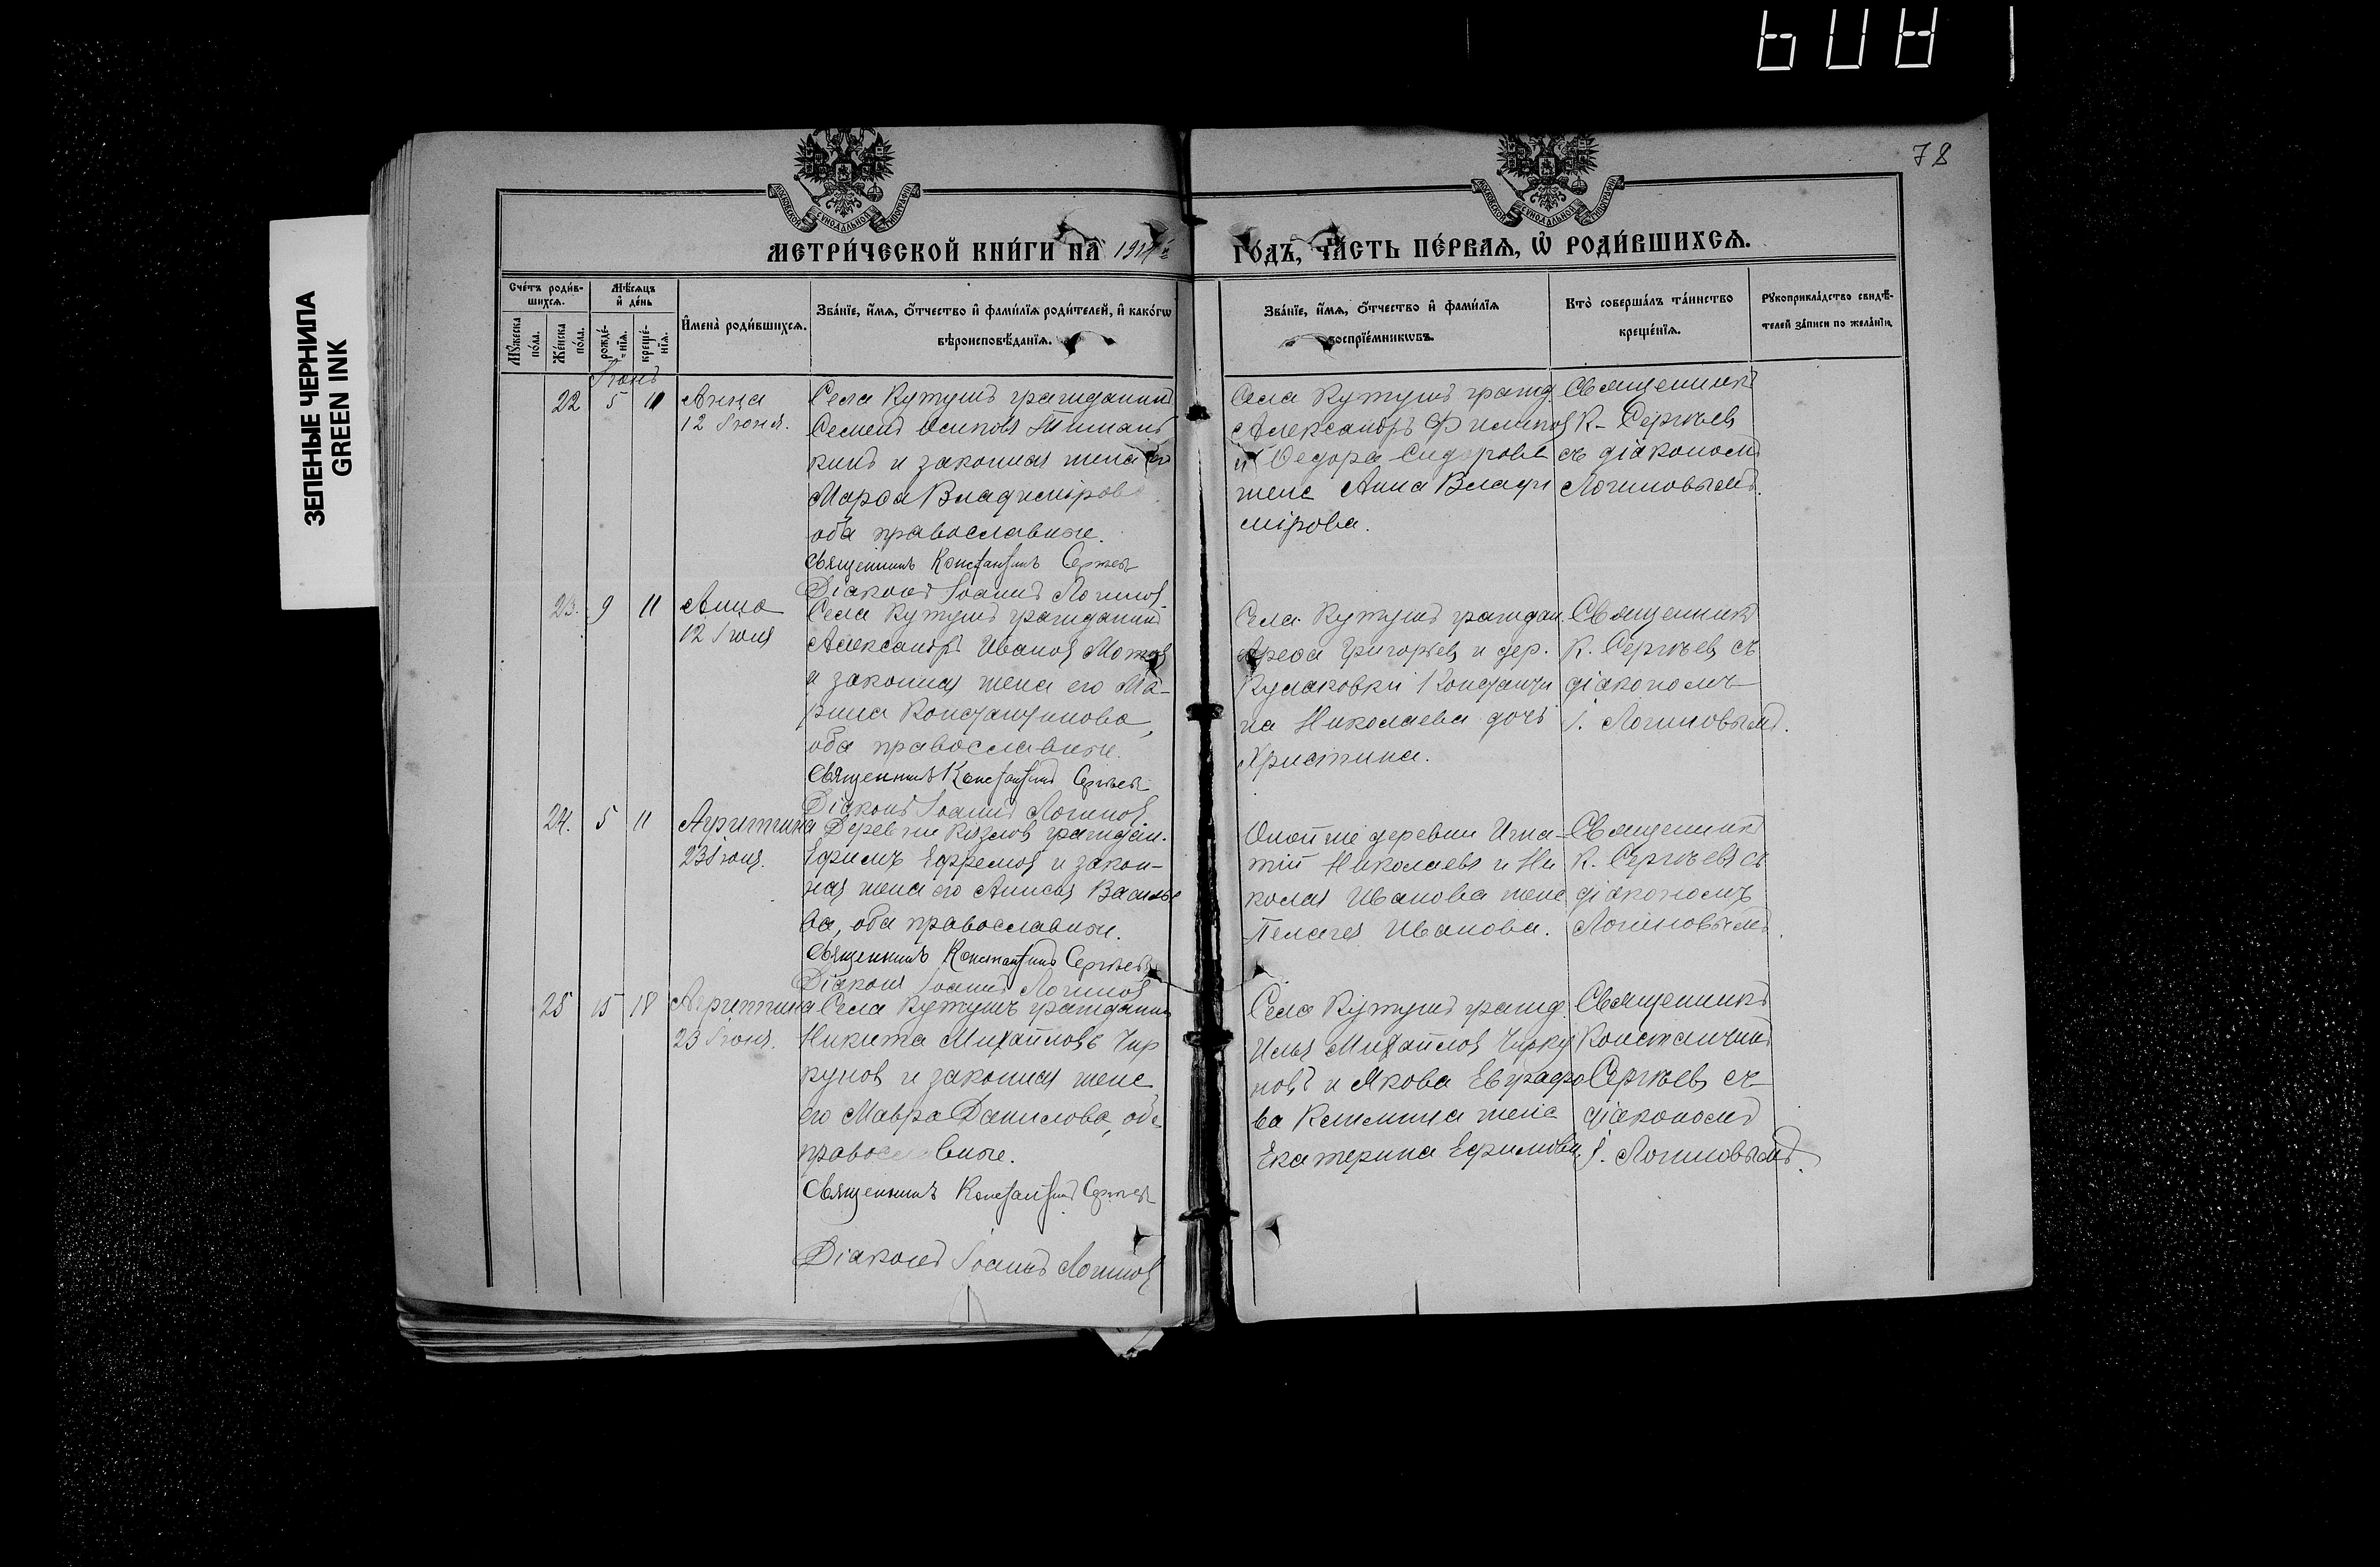 78
ЗЕЛЕНЫЕ ЧЕРНИЛА
GREEN INK
МЕТРИ́ЧЕСКОЙ КНИ́ГИ НА
ГО́ДЪ, ЧА́СТЬ ПЕ́РВАѦ, Ѡ҆ РОДИ́ВШИХСѦ.
Сче́тъ роди́в-
шихсѧ.
Мꙋ́жеска
по́ла.
Же́нска
по́ла.
Мѣ́сѧцъ
и҆ де́нь
рожде́-
нїѧ.
креще́-
нїѧ.
И҆мена̀ роди́вшихсѧ.
Зва́нїе, и҆́мѧ, ѻ҆́тчество и҆ фами́лїѧ роди́телей, и҆ како́гѡ
вѣроисповѣ́данїѧ.
Зва́нїе, и҆́мѧ, ѻ҆́тчество и҆ фами́лїѧ
воспрїе́мникѡвъ.
Кто̀ соверша́лъ та́инство
креще́нїѧ.
Рꙋкоприкла́дство свидѣ́-
телей за́писи по жела́нїю.
Іюнь
22 5 11 Анна
12 Іюня.
Села Кутушъ гражданинъ
Семенъ Осиповъ Тиман
кинъ и законная жена его
Марѳа Владимірова
оба православные.
Священникъ Константинъ Сергѣевъ
Діаконъ Іоаннъ Логиновъ
Села Кутушъ гражд.
Александръ Филипов
и Ѳедора Сидорова
жена Анна Влади
мірова.
Священникъ
К. Сергѣевъ
съ діакономъ
Логиновымъ.
23. 9 11 Анна
12 Іюня
Села Кутушъ гражданинъ
Александръ Ивановъ
и законная жена его Ма-
рина Константинова,
оба православные.
Священникъ Константинъ Сергѣевъ
Діаконъ Іоаннъ Логиновъ
Села Кутушъ граждан.
Ареѳа Григорьевъ и дер.
Кулаковки Константи
на Николаева дочь
Христина.
Священникъ
К. Сергѣевъ съ
діакономъ
І. Логиновымъ.
24. 5 11 Агриппина
23 Іюня.
Деревни граждан.
Ефимъ Ефремовъ и закон-
ная жена его Анисья Василье
ва, оба православные.
Священникъ Константинъ Сергѣевъ
Діаконъ Іоаннъ Логиновъ
Оной же деревни Игна-
тій Николаевъ и Ни
колая Иванова жена
Пелагея Иванова.
Священникъ
К. Сергѣевъ съ
діакономъ
Логиновымъ.
25 15 18 Агриппина
23 Іюня.
Села Кутушъ гражданинъ
Никита Михайловъ Чир
куновъ и законная жена
его Мавра Данилова, оба
православные.
Священникъ Константинъ Сергѣевъ
Діаконъ Іоаннъ Логиновъ
Села Кутушъ гражд.
Илья Михайловъ Чирку
новъ и Якова Евграфо
ва жена
Екатерина Ефимова
Священникъ
Константинъ
Сергѣевъ съ
діакономъ
І. Логиновымъ.